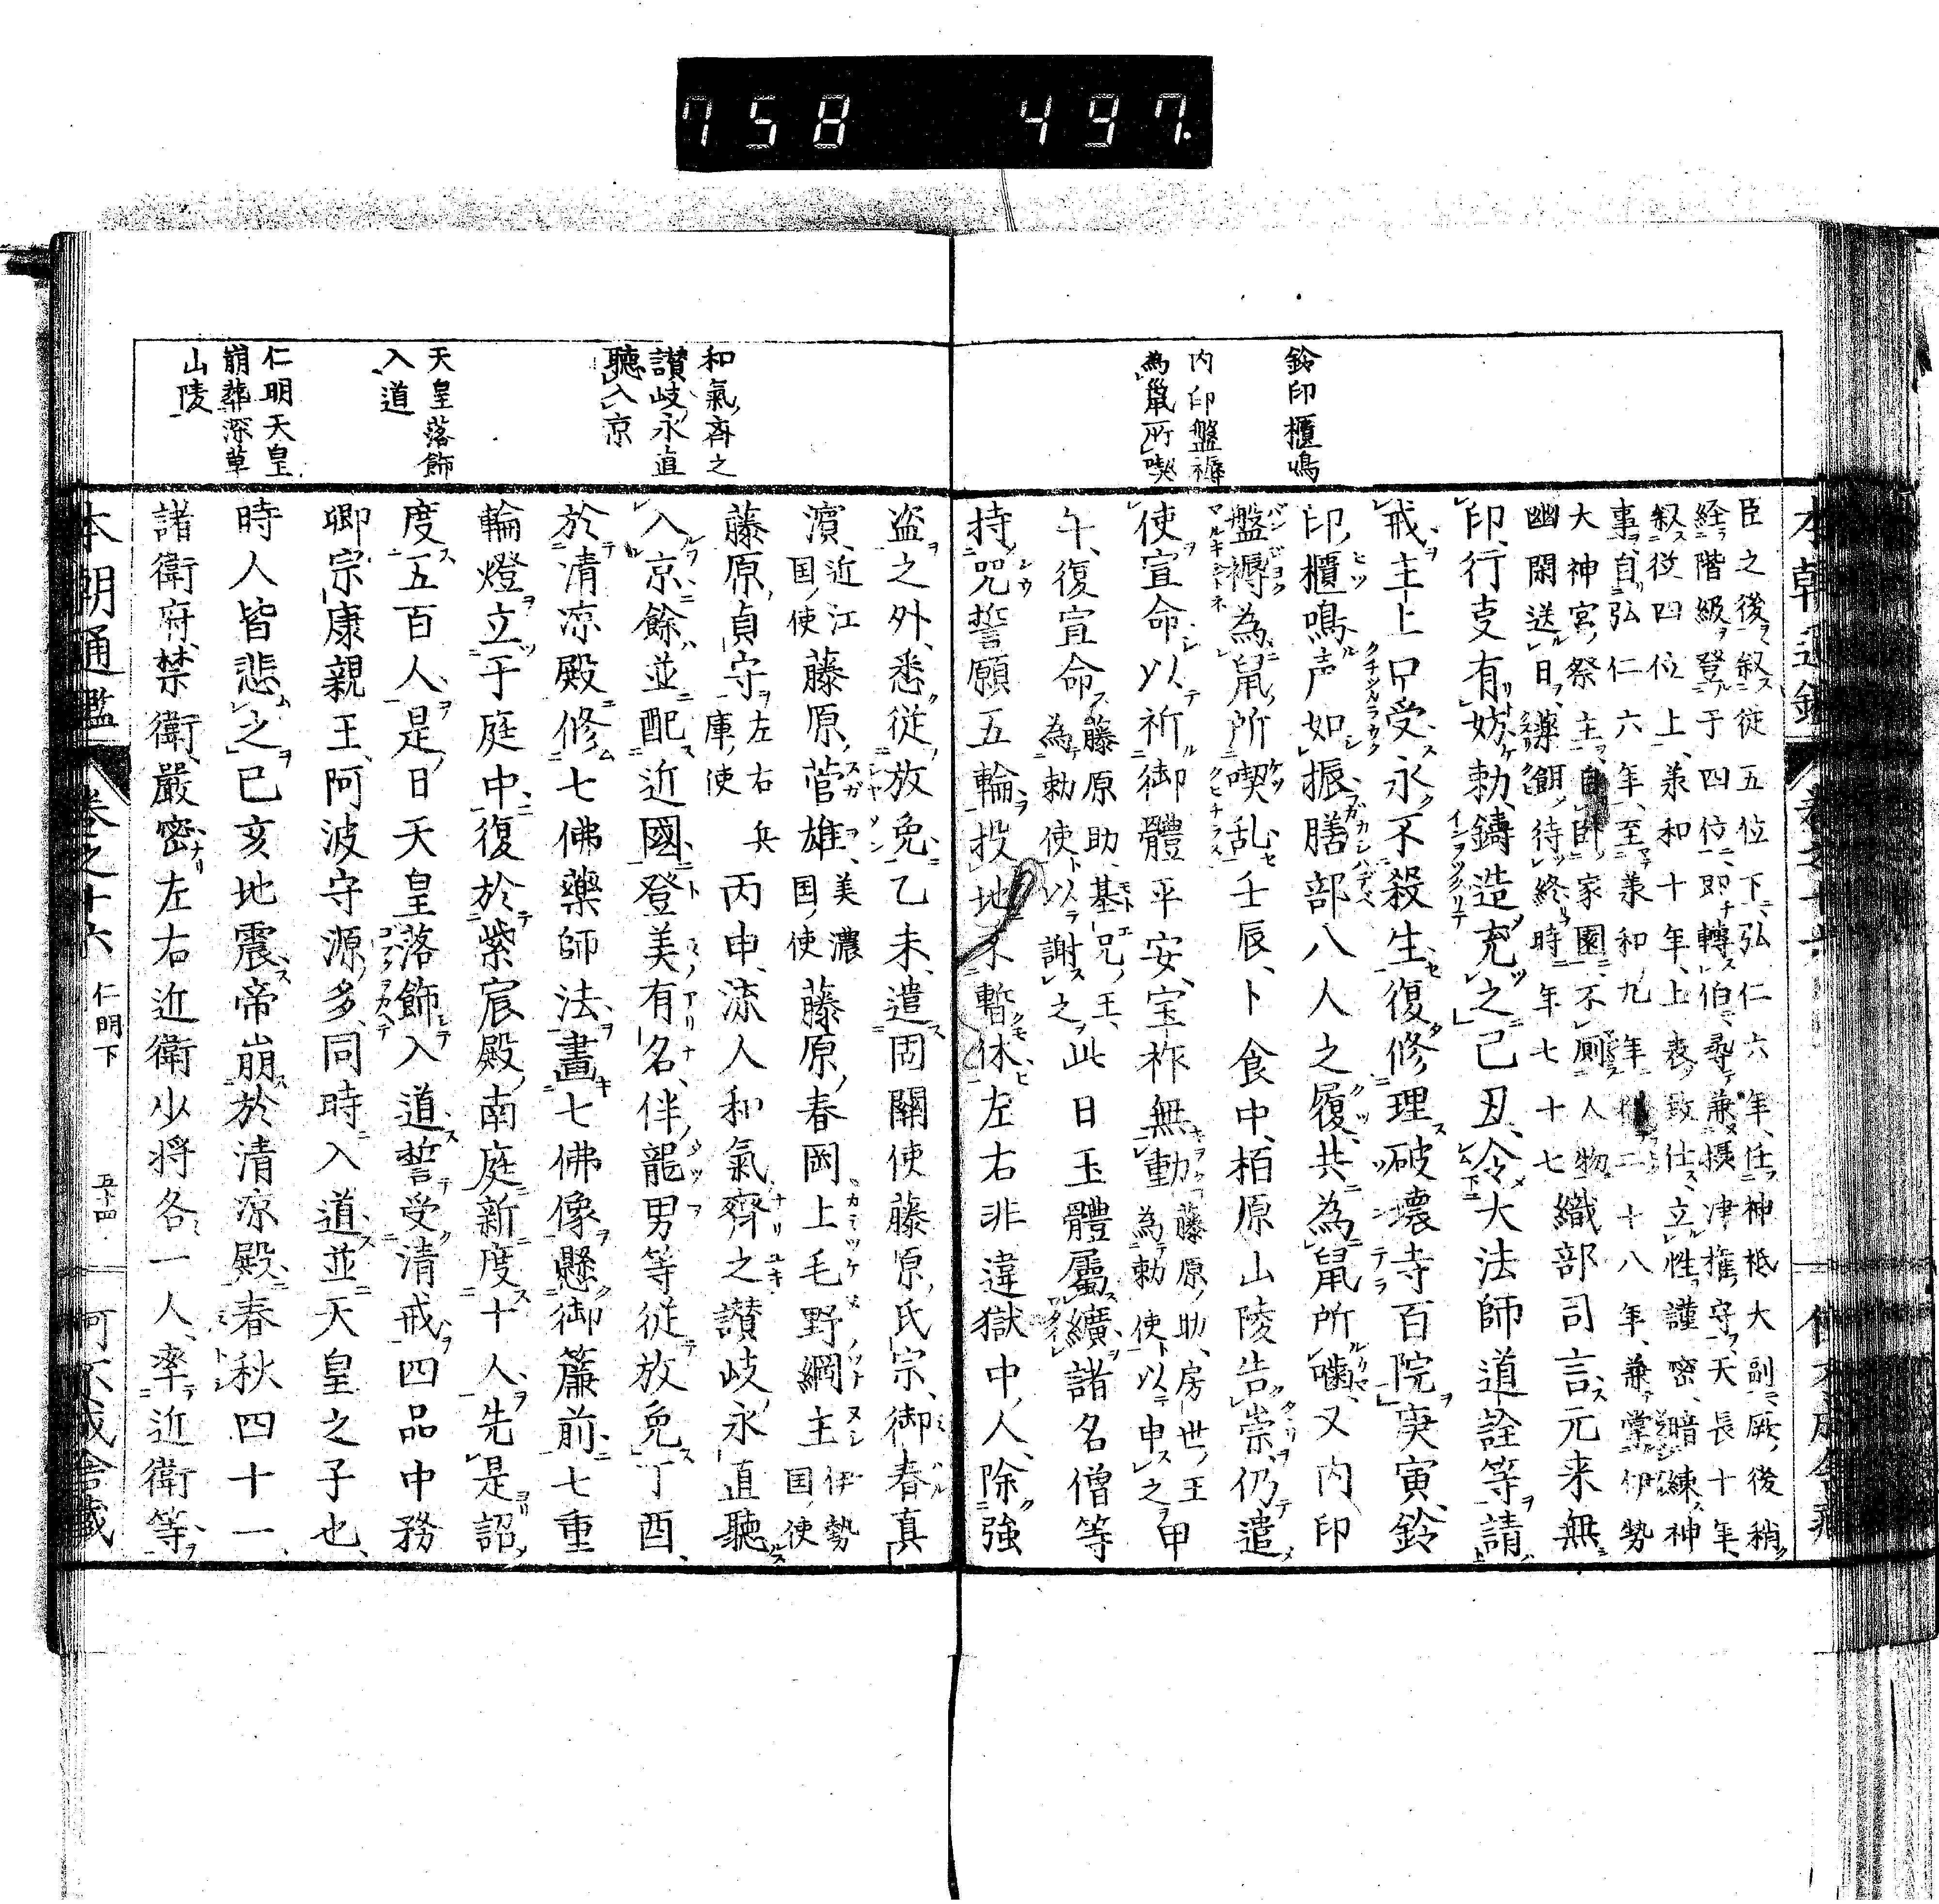 758 497.
鈴印櫃鳴
内印盤褥
為鼠所喫
臣之後叙従五位下弘仁六年任神祇大副厥後稍
経階級登于四位即轉伯尋兼摂津権守天長十年
叙従四位上承和十年上表致仕立性謹密暗練神
事自弘仁六年至承和九年二十八年兼掌伊勢
大神宮祭主自師家園不厠人物
幽閑送日薬餌待終時年七十七織部司言元来無
印行叓有妨勅鋳造充之己丑令大法師道詮等請
戒主上口受永不殺生復修理破壊寺百院庚寅鈴
印櫃鳴声如振膳部八人之履共為鼠所嚙又内印
盤褥為鼠所喫乱壬辰卜食中栢原山陵告祟仍遣
使宣命以祈御體平安宝祚無動藤原助房世王為勅使以申之甲
午復宣命藤原助基兄王為勅使以謝之此日玉體属纊諸名僧等
持咒誓願五輪投地不暫休左右非違獄中人除強
盗之外悉従放免乙未遣固關使藤原氏宗御春真
濱近江国使藤原菅雄美濃国使藤原春岡上毛野綱主伊勢国使
藤原貞守左右兵庫使丙申流人和氣齊之讃岐永直聽
入京餘並配近國登美有名伴龍男等従放免丁酉
於清凉殿修七佛薬師法畫七佛像懸御簾前七重
輪燈立于庭中復於紫宸殿南庭新度十人先是詔
度五百人是日天皇落飾入道誓受清戒四品中務
卿宗康親王阿波守源多同時入道並天皇之子也
時人皆悲之已亥地震帝崩於清凉殿春秋四十一
諸衛府禁衛嚴密左右近衛少将各一人率近衛等
和氣斉之
讃岐永直
聽入京
天皇落飾
入道
仁明天皇
崩葬深草
山陵
本朝通鑑 巻之十六 仁明下 五十四